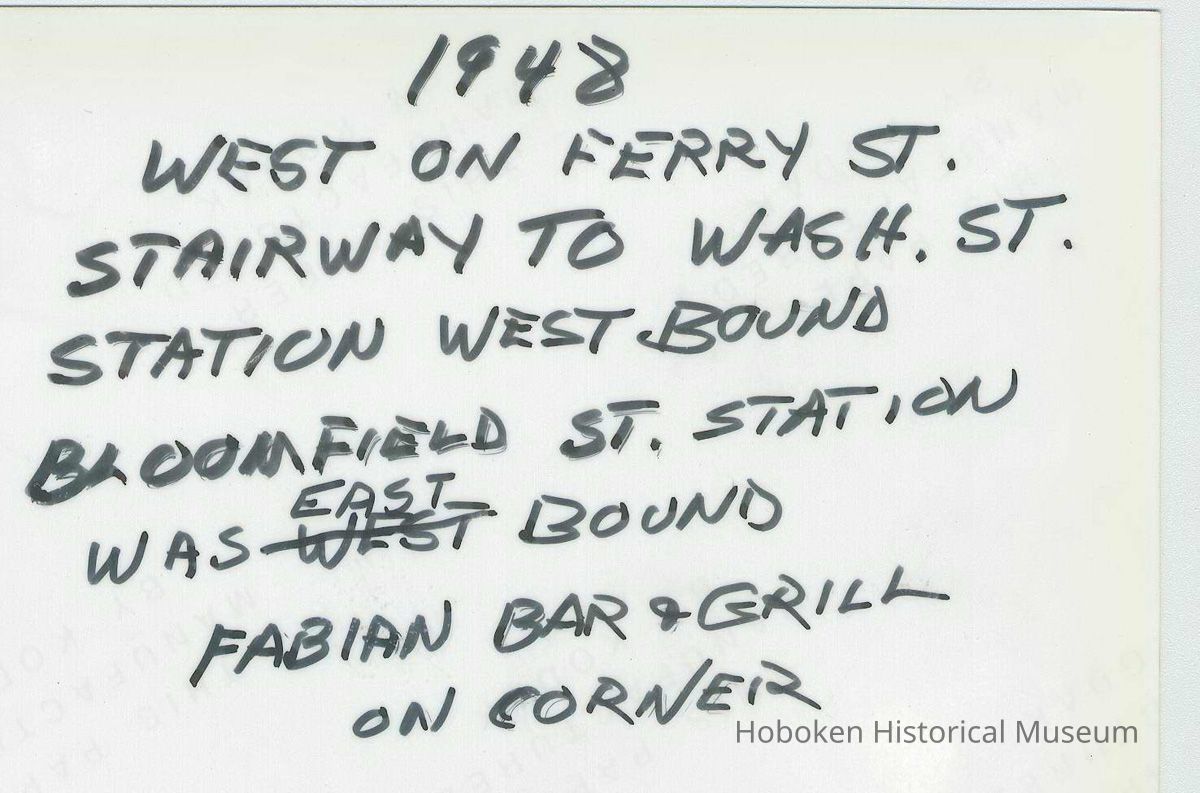 1948
WEST ON FERRY ST.
STAIRWAY TO WASH. ST.
STATION WEST BOUND
BLOOMFIELD ST. STATION
EAST
WAS WEST BOUND
FABIAN BAR & GRILL
ON CORNER
Hoboken Historical Museum